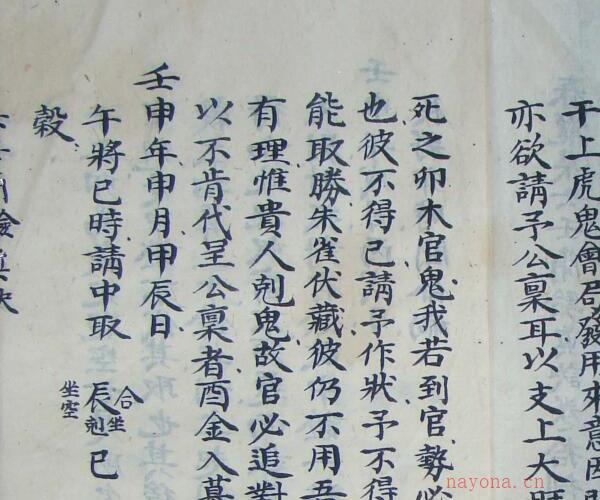 干上虎鬼會
發用來意因
亦欲請予公稟耳以支上大
死之卯木官鬼我若到官勢必
也彼不得已請予作狀予不得
能取勝朱雀伏藏彼仍不用吾
有理惟貴人剋鬼故官必追對
以不肯代呈公稟者酉金入墓
壬申年申月甲辰日
午將巳時請中取 辰剋巳
合坐
坐空
穀
nayona.cn